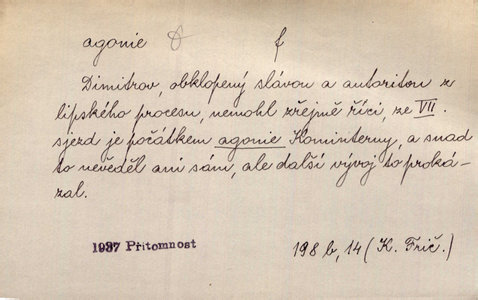 agonie f
Dimitrov, obklopený slávou a autoritou z
lipského procesu, nemohl zřejmě říci, ze VII.
sjezd je počátkem agonie Kominterny, a snad
to nevěděl ani sám, ale další vývoj to proká-
zal.
1937 Přítomnost 198 b, 14 (K. Frič.)